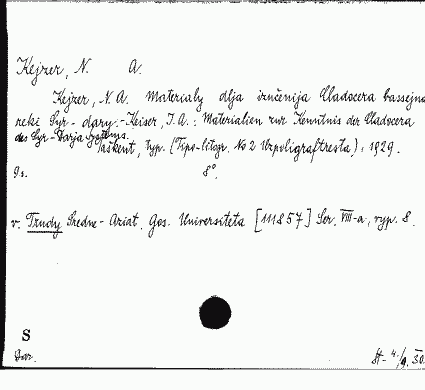 Kejzer, N. A.
Kejzer, N. A. Materialy dlja izučenija Cladocera bassejna
reki Syr-dary.-Keiser, J. A.: Materialien zur Kenntnis der Cladocera
des Syr-Darja Systems.
Taškent, typ. (Tipo-litogr. No 2 Uzpoligraftresta), 1929.
9s. 8°.
v. Trudy Sredne-Aziat. Gos. Universiteta [111857] Ser. VIII-a, vyp. 8.
S
Dar.
4./9. 30.